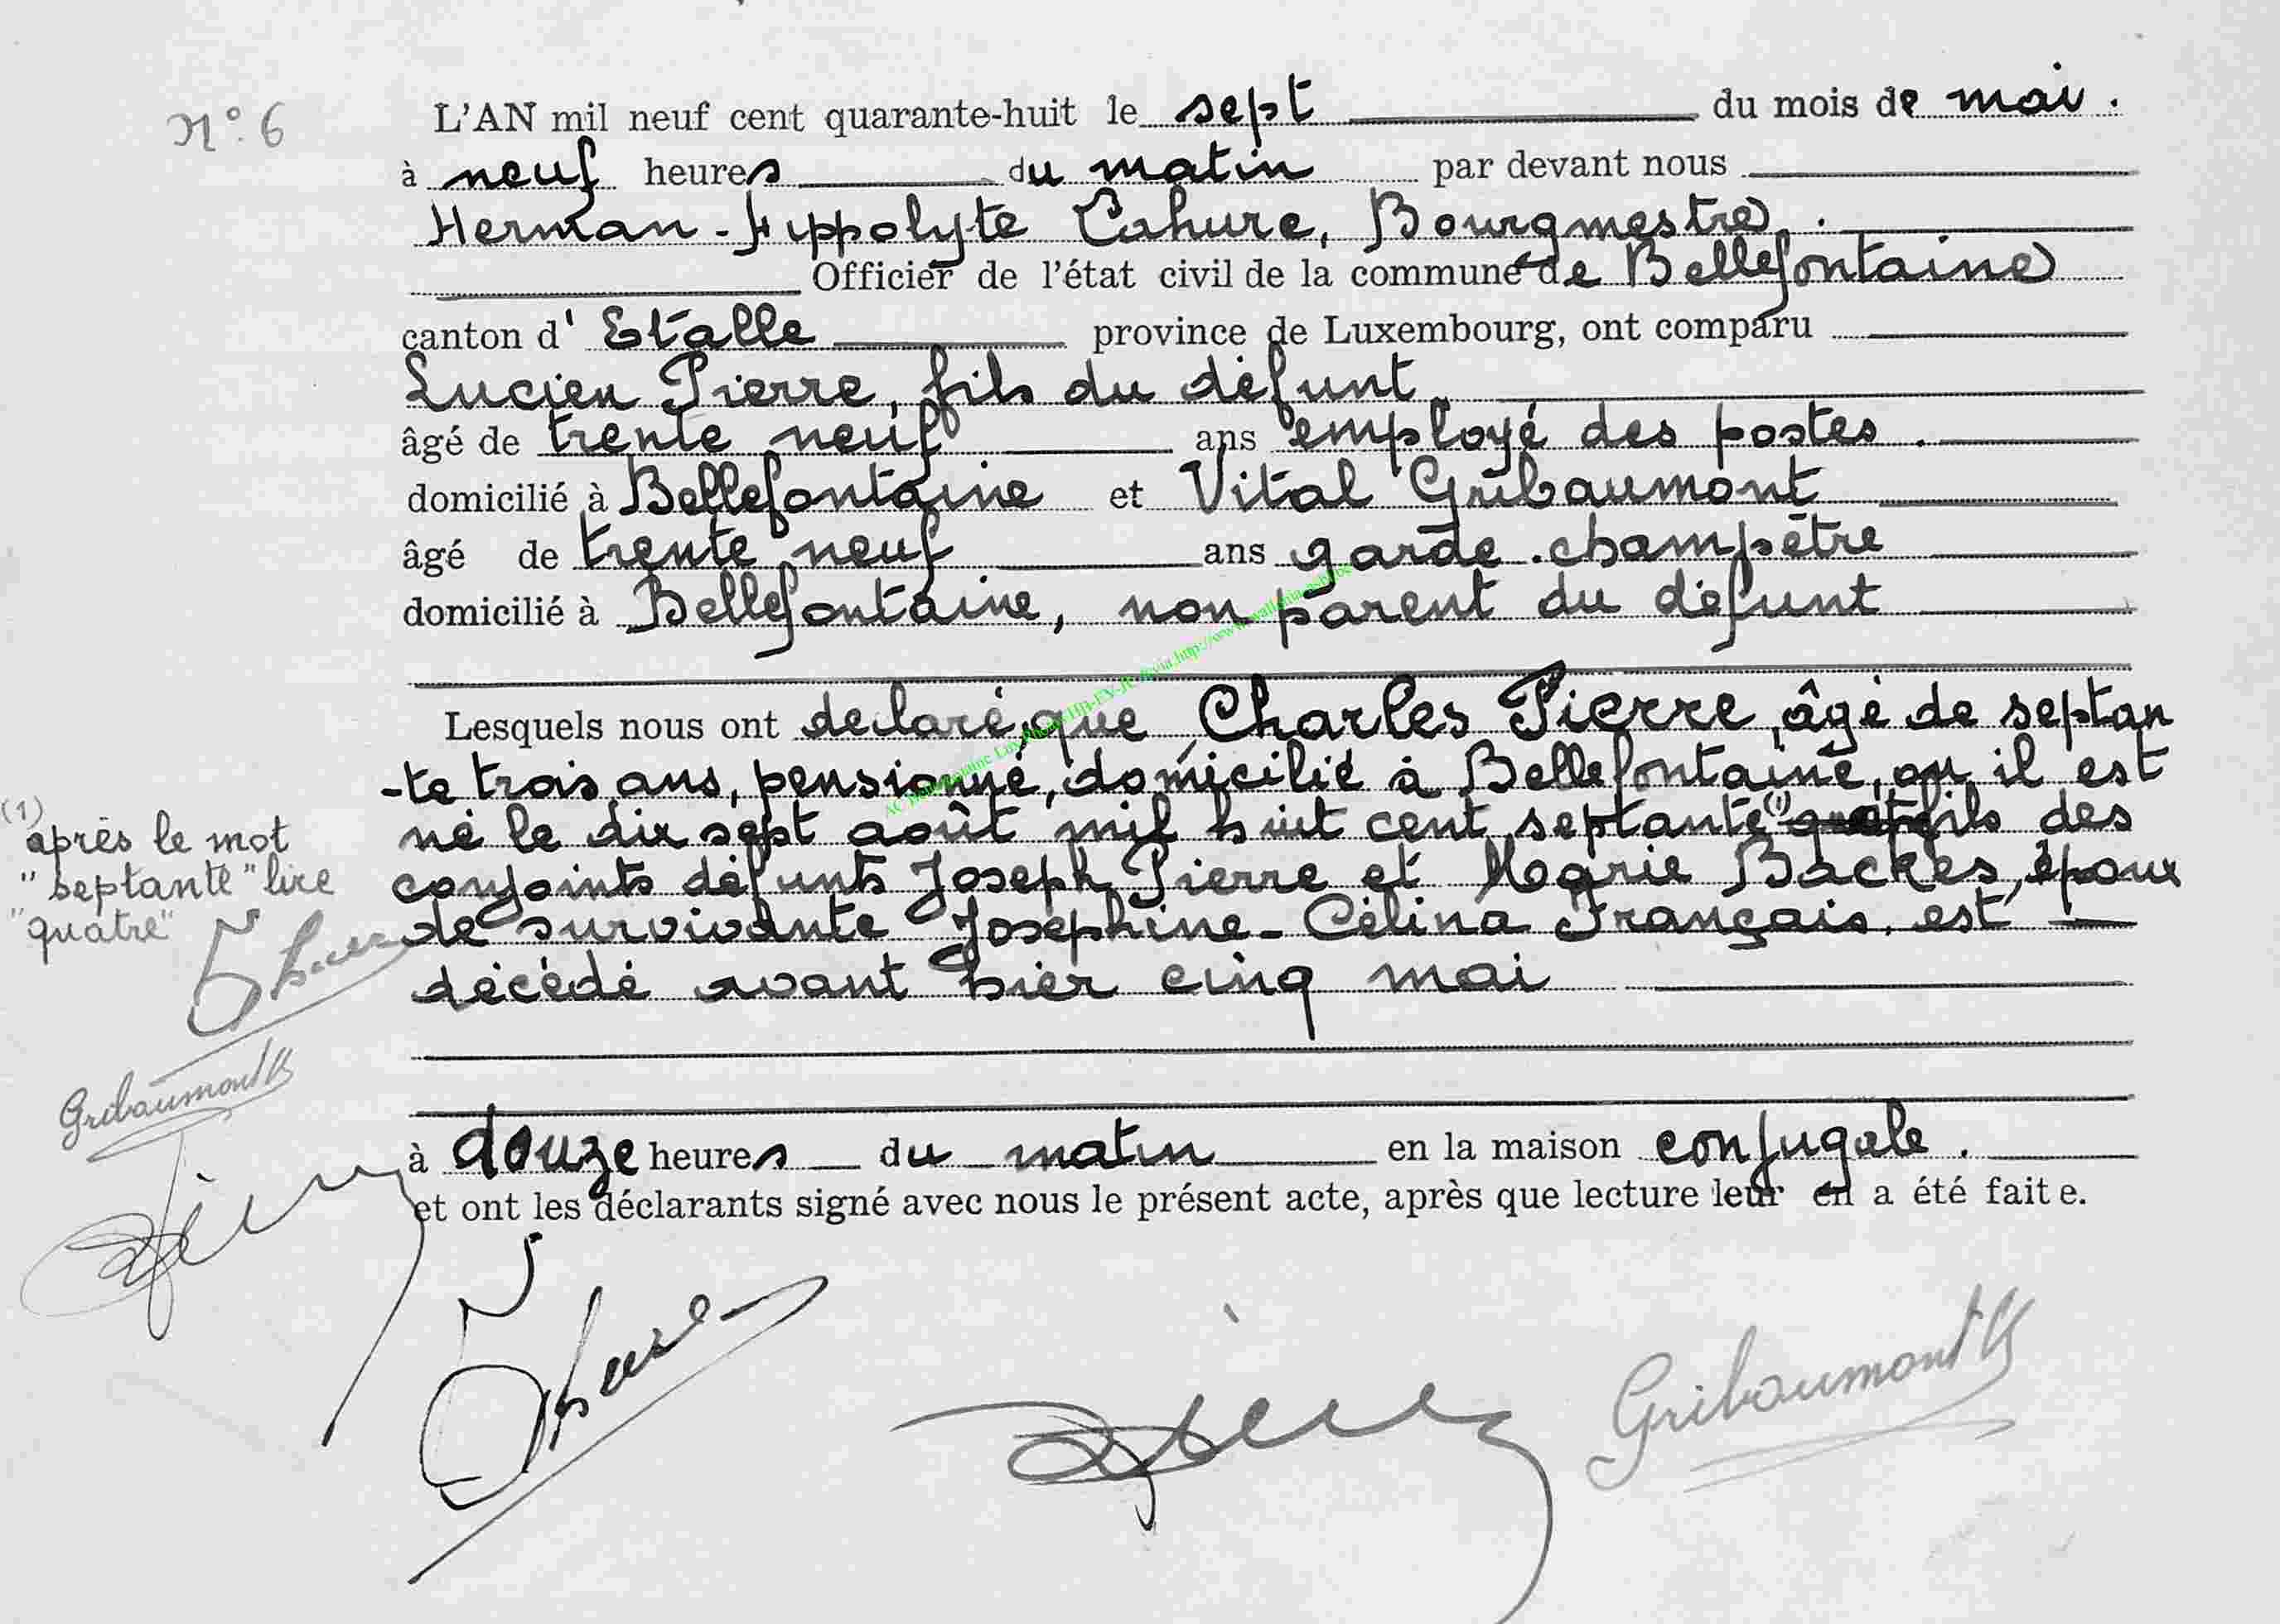 N°. 6
L'AN mil neuf cent quarante-huit le sept du mois de mai.
à neuf heures du matin par devant nous
Herman-Hippolyte Cahure, Bourgmestre.
Officier de l'état civil de la commune de Bellefontaine
canton d' Etalle province de Luxembourg, ont comparu
Lucien Pierre, fils du défunt
âgé de trente neuf ans employé des postes.
domicilié à Bellefontaine et Vital Gribaumont
âgé de trente neuf ans garde-champêtre
domicilié à Bellefontaine, non parent du défunt
Lesquels nous ont declaré, que Charles Pierre, âgé de septan
-te trois ans, pensionné, domicilié à Bellefontaine, ou il est
né le dix sept août mil huit cent septante (1) fils des
conjoints défunts Joseph Pierre et Marie Backes, époux
de survivante Josephine-Célina Français, est
décédé avant hier cinq mai
à douze heures du matin en la maison conjugale.
et ont les déclarants signé avec nous le présent acte, après que lecture leur en a été faite.
(1)
après le mot
"septante" lire
"quatre"
Gribaumont
Gribaumont